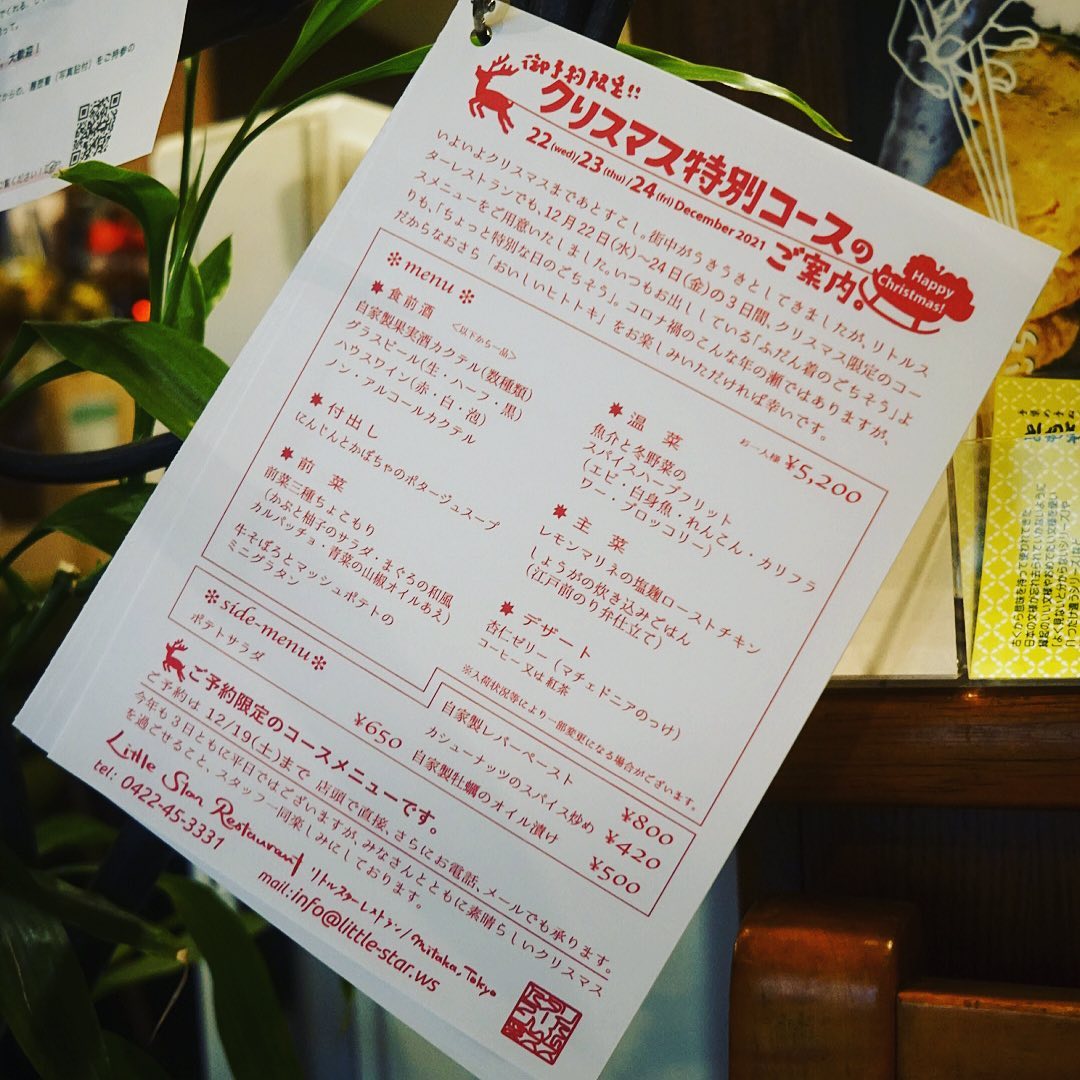 御予約限定!!
クリスマス特別コースの
ご案内。
22(wed)/23(thu)/24(fri) December 2021
Happy
Christmas!
いよいよクリスマスまであとすこし。街中がうきうきとしてきましたが、リトルス
ターレストランでも、12月22日(水)〜24日(金)の3日間、クリスマス限定のコー
スメニューをご用意いたしました。いつもお出ししている「ふだん着のごちそう」よ
りも、「ちょっと特別な日のごちそう」。コロナ禍のこんな年の瀬ではありますが、
だからなおさら「おいしいヒトトキ」をお楽しみいただければ幸いです。
menu
お一人様 ¥5,200
食前酒 <以下から一品>
自家製果実酒カクテル(数種類)
グラスビール(生・ハーフ・黒)
ハウスワイン(赤・白・泡)
ノン・アルコールカクテル
付出し
にんじんとかぼちゃのポタージュスープ
前菜
前菜三種ちょこもり
(かぶと柚子のサラダ・まぐろの和風
カルパッチョ・青菜の山椒オイルあえ)
牛そぼろとマッシュポテトの
ミニグラタン
温菜
魚介と冬野菜の
スパイスハーブフリット
(エビ・白身魚・れんこん・カリフラ
ワー・ブロッコリー)
主菜
レモンマリネの塩麹ローストチキン
しょうがの炊き込みごはん
(江戸前のり弁仕立て)
デザート
杏仁ゼリー(マチェドニアのっけ)
コーヒー又は紅茶
※入荷状況等により一部変更になる場合がございます。
side-menu
自家製レバーペースト ¥800
カシューナッツのスパイス炒め ¥420
ポテトサラダ ¥650 自家製牡蠣のオイル漬け ¥500
ご予約限定のコースメニューです。
ご予約は 12/19(土)まで 店頭で直接、さらにお電話、メールでも承ります。
今年も3日ともに平日ではございますが、みなさんとともに素晴らしいクリスマス
を過ごせること、スタッフ一同楽しみにしております。
Little Star Restaurant リトルスターレストラン/Mitaka, Tokyo
tel: 0422-45-3331 mail:info@little-star.ws
大歓迎!
履歴書(写真貼付)をご持参の
古くから意味を持って使われてきた
日本の文様が忘れ去られていかないように